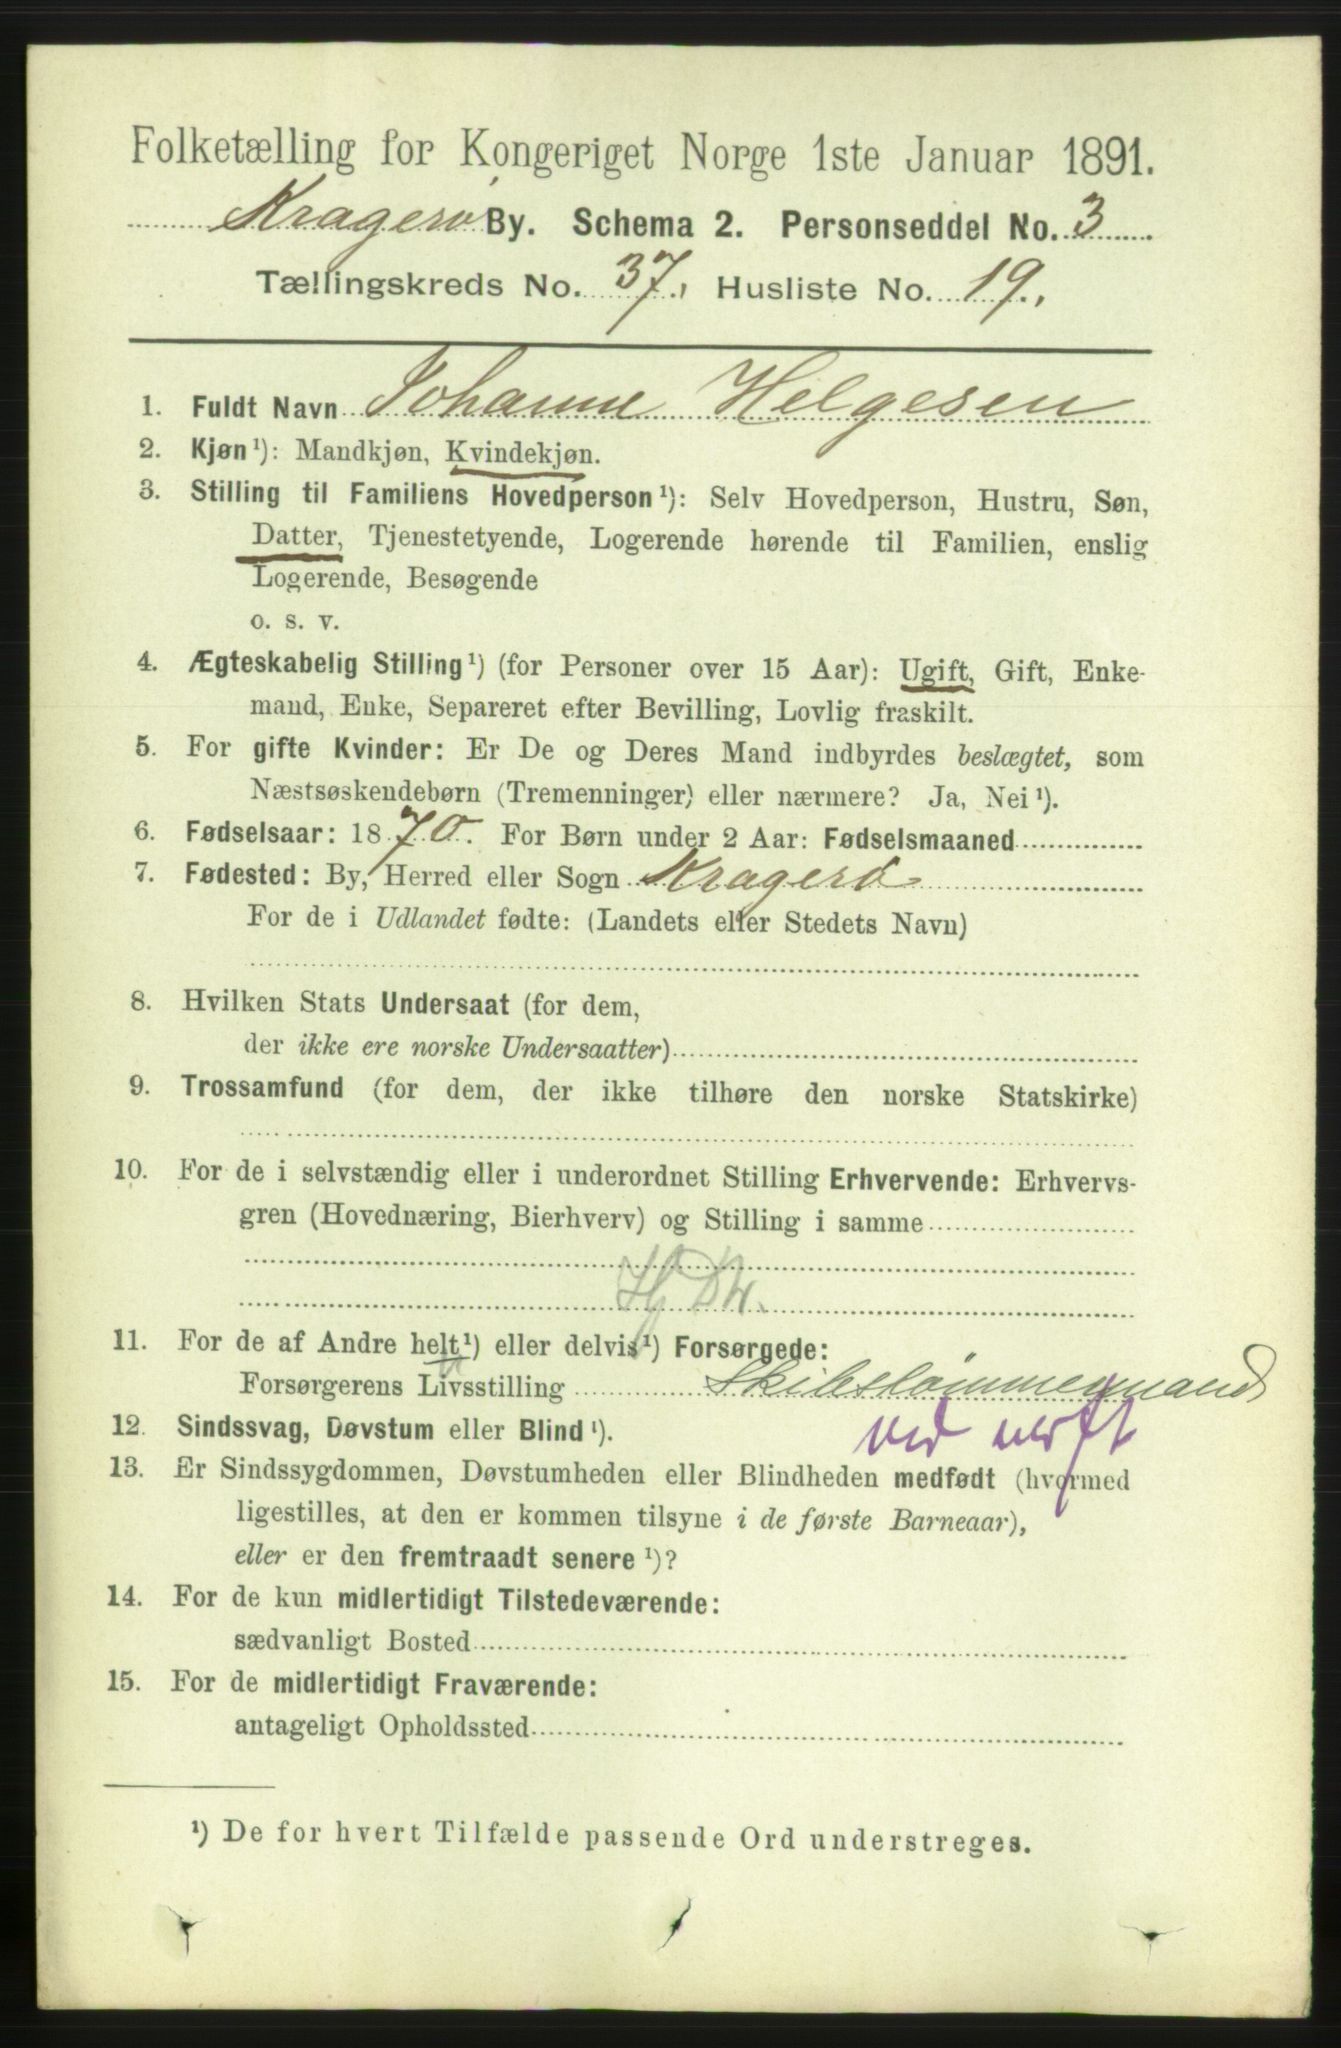 Folketælling for Kongeriget Norge 1ste Januar 1891.
Kragerø By. Schema 2. Personseddel No. 3
Tællingskreds No. 37. Husliste No. 19.
1. Fuldt Navn Johanne Helgesen
2. Kjøn¹): Mandkjøn, Kvindekjøn.
3. Stilling til Familiens Hovedperson¹): Selv Hovedperson, Hustru, Søn,
Datter, Tjenestetyende, Logerende hørende til Familien, enslig
Logerende, Besøgende
o. s. v.
4. Ægteskabelig Stilling¹) (for Personer over 15 Aar): Ugift, Gift, Enke-
mand, Enke, Separeret efter Bevilling, Lovlig fraskilt.
5. For gifte Kvinder: Er De og Deres Mand indbyrdes beslægtet, som
Næstsøskendebørn (Tremenninger) eller nærmere? Ja, Nei¹).
6. Fødselsaar: 1870. For Børn under 2 Aar: Fødselsmaaned
7. Fødested: By, Herred eller Sogn Kragerø
For de i Udlandet fødte: (Landets eller Stedets Navn)
8. Hvilken Stats Undersaat (for dem,
der ikke ere norske Undersaatter)
9. Trossamfund (for dem, der ikke tilhøre den norske Statskirke)
10. For de i selvstændig eller i underordnet Stilling Erhvervende: Erhvervs-
gren (Hovednæring, Bierhverv) og Stilling i samme
11. For de af Andre helt¹) eller delvis¹) Forsørgede:
Forsørgerens Livsstilling Skibstømmermand
ved
12. Sindssvag, Døvstum eller Blind¹).
13. Er Sindssygdommen, Døvstumheden eller Blindheden medfødt (hvormed
ligestilles, at den er kommen tilsyne i de første Barneaar),
eller er den fremtraadt senere¹)?
14. For de kun midlertidigt Tilstedeværende:
sædvanligt Bosted
15. For de midlertidigt Fraværende:
antageligt Opholdssted
¹) De for hvert Tilfælde passende Ord understreges.